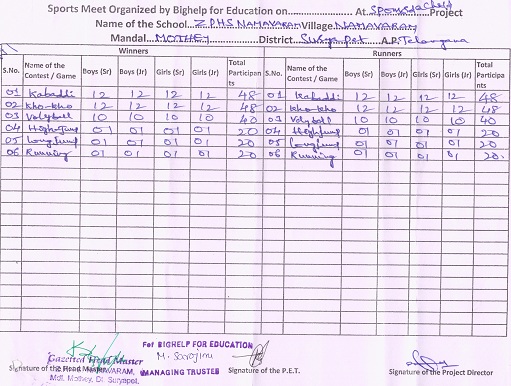 Sports Meet Organized by Bighelp for Education on.................... At Sponsd a child Project
Name of the School...Z.P.H.S NAMAVARAM Village NAMAVARAM
Mandal...MOTHEY...District Suryapet...A.P./Telangana
Winners Runners
S.No. Name of the Contest / Game Boys (Sr) Boys (Jr) Girls (Sr) Girls (Jr) Total Participan ts S.No. Name of the Contest / Game Boys (Sr) Boys (Jr) Girls (Sr) Girls (Jr) Total Participa nts
01 Kabaddi 12 12 12 12 48 01 Kabaddi 12 12 12 12 48
02 Kho-kho 12 12 12 12 48 02 Kho-kho 12 12 12 12 48
03 Volyball 10 10 10 10 40 03 Volyball 10 10 10 10 40
04 Highjump 01 01 01 01 20 04 Highjump 01 01 01 01 20
05 Longjump 01 01 01 01 20 05 Longjump 01 01 01 01 20
06 Running 01 01 01 01 20 06 Running 01 01 01 01 20
For BIGHELP FOR EDUCATION
M. Sarojinu
Gazetted Head Master
Signature of the Head Master NAMAVARAM, MANAGING TRUSTEE Signature of the P.E.T. Signature of the Project Director
Mdl. Mothey, Dt. Suryapet.